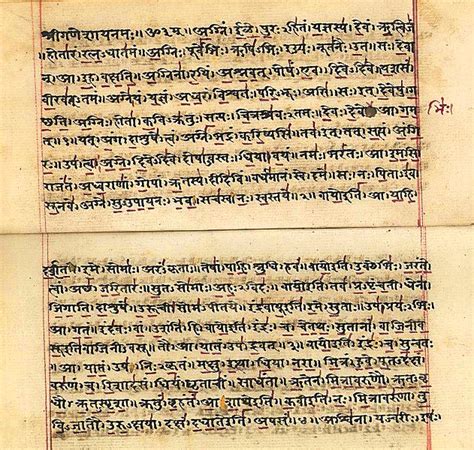 श्रीगणेशायनमः॥ॐ३म्॥अग्निं।ईळे।पुरःहितं।यज्ञस्य।देवं।ऋत्विजं
।होतारं।रत्नधातमं॥अग्निः।पूर्वेभिः।ऋषिभिः।ईड्यः।नूतनैः।उत।सः।देवा
न्।आ।इह।वक्षति॥अग्निना।रयिं।अश्नवत्।पोषं।एव।दिवेदिवे।यशसं
वीरवत्तमं॥अग्ने।यं।यज्ञं।अध्वरं।विश्वतः।परिभूः।असि।सः।इत्।देवेषु।ग
च्छति॥अग्निः।होता।कविक्रतुः।सत्यः।चित्रश्रवःतमः।देवः।देवे।आ।गम
भिः।
त्॥१॥यत्।अंग।दाशुषे।त्वं।अग्ने।भद्रं।करिष्यसि।तव।इत्।तत्।सत्यं।अंगि
रः॥उप।त्वा।अग्ने।दिवेदिवे।दोषावस्तः।धिया।वयं।नमः।भरंतः।आ।इमसि
राजंतं।अध्वराणां।गोपां।ऋतस्य।दीदिविं।वर्धमानं।स्वे।दमे॥सः।नः।पिताइव
सूनवे।अग्ने।सुउपायनः।भव।सचस्व।नः।स्वस्तये॥२॥वायोइति।आ।याहि
दर्शत।इमे।सोमाः।अरंकृताः।तेषां।पाहि।श्रुधि।हवं॥वायोइति।उक्थेभिः।जरंते
त्वां।अच्छ।जरितारः।सुतसोमाः।अहःविदः॥वायोइति।तव।प्रपृंचती।धेना
जिगाति।दाशुषे।उरूची।सोमपीतये॥इंद्रवायूइति।इमे।सुताः।उप।प्रयःभिः
आ।गतं।इंदवः।वां।उशंति।हि॥वायोइति।इंद्रः।च।चेतथः।सुतानां।वाजिनीव
सूइतिवाजिनीवसू।तौ।आ।यातं।उप।द्रवत्॥३॥वायोइति।इंद्रः।च।सुन्वतः
आ।यातं।उप।निःकृतं।मक्षु।इत्था।धिया।नरा॥मित्रं।हुवे।पूतदक्षं
वरुणं।च।रिशादसं।धियं।घृताचीं।साधंता॥ऋतेन।मित्रावरुणौ।ऋतवृ
धौ।ऋतस्पृशा।क्रतुं।बृहंतं।आशाथेइति॥कवीइति।नः।मित्रावरुणा।तु
विजातौ।उरुक्षया।दक्षं।दधातेइति।अपसं॥४॥अश्विना।यज्वरीः।इषः